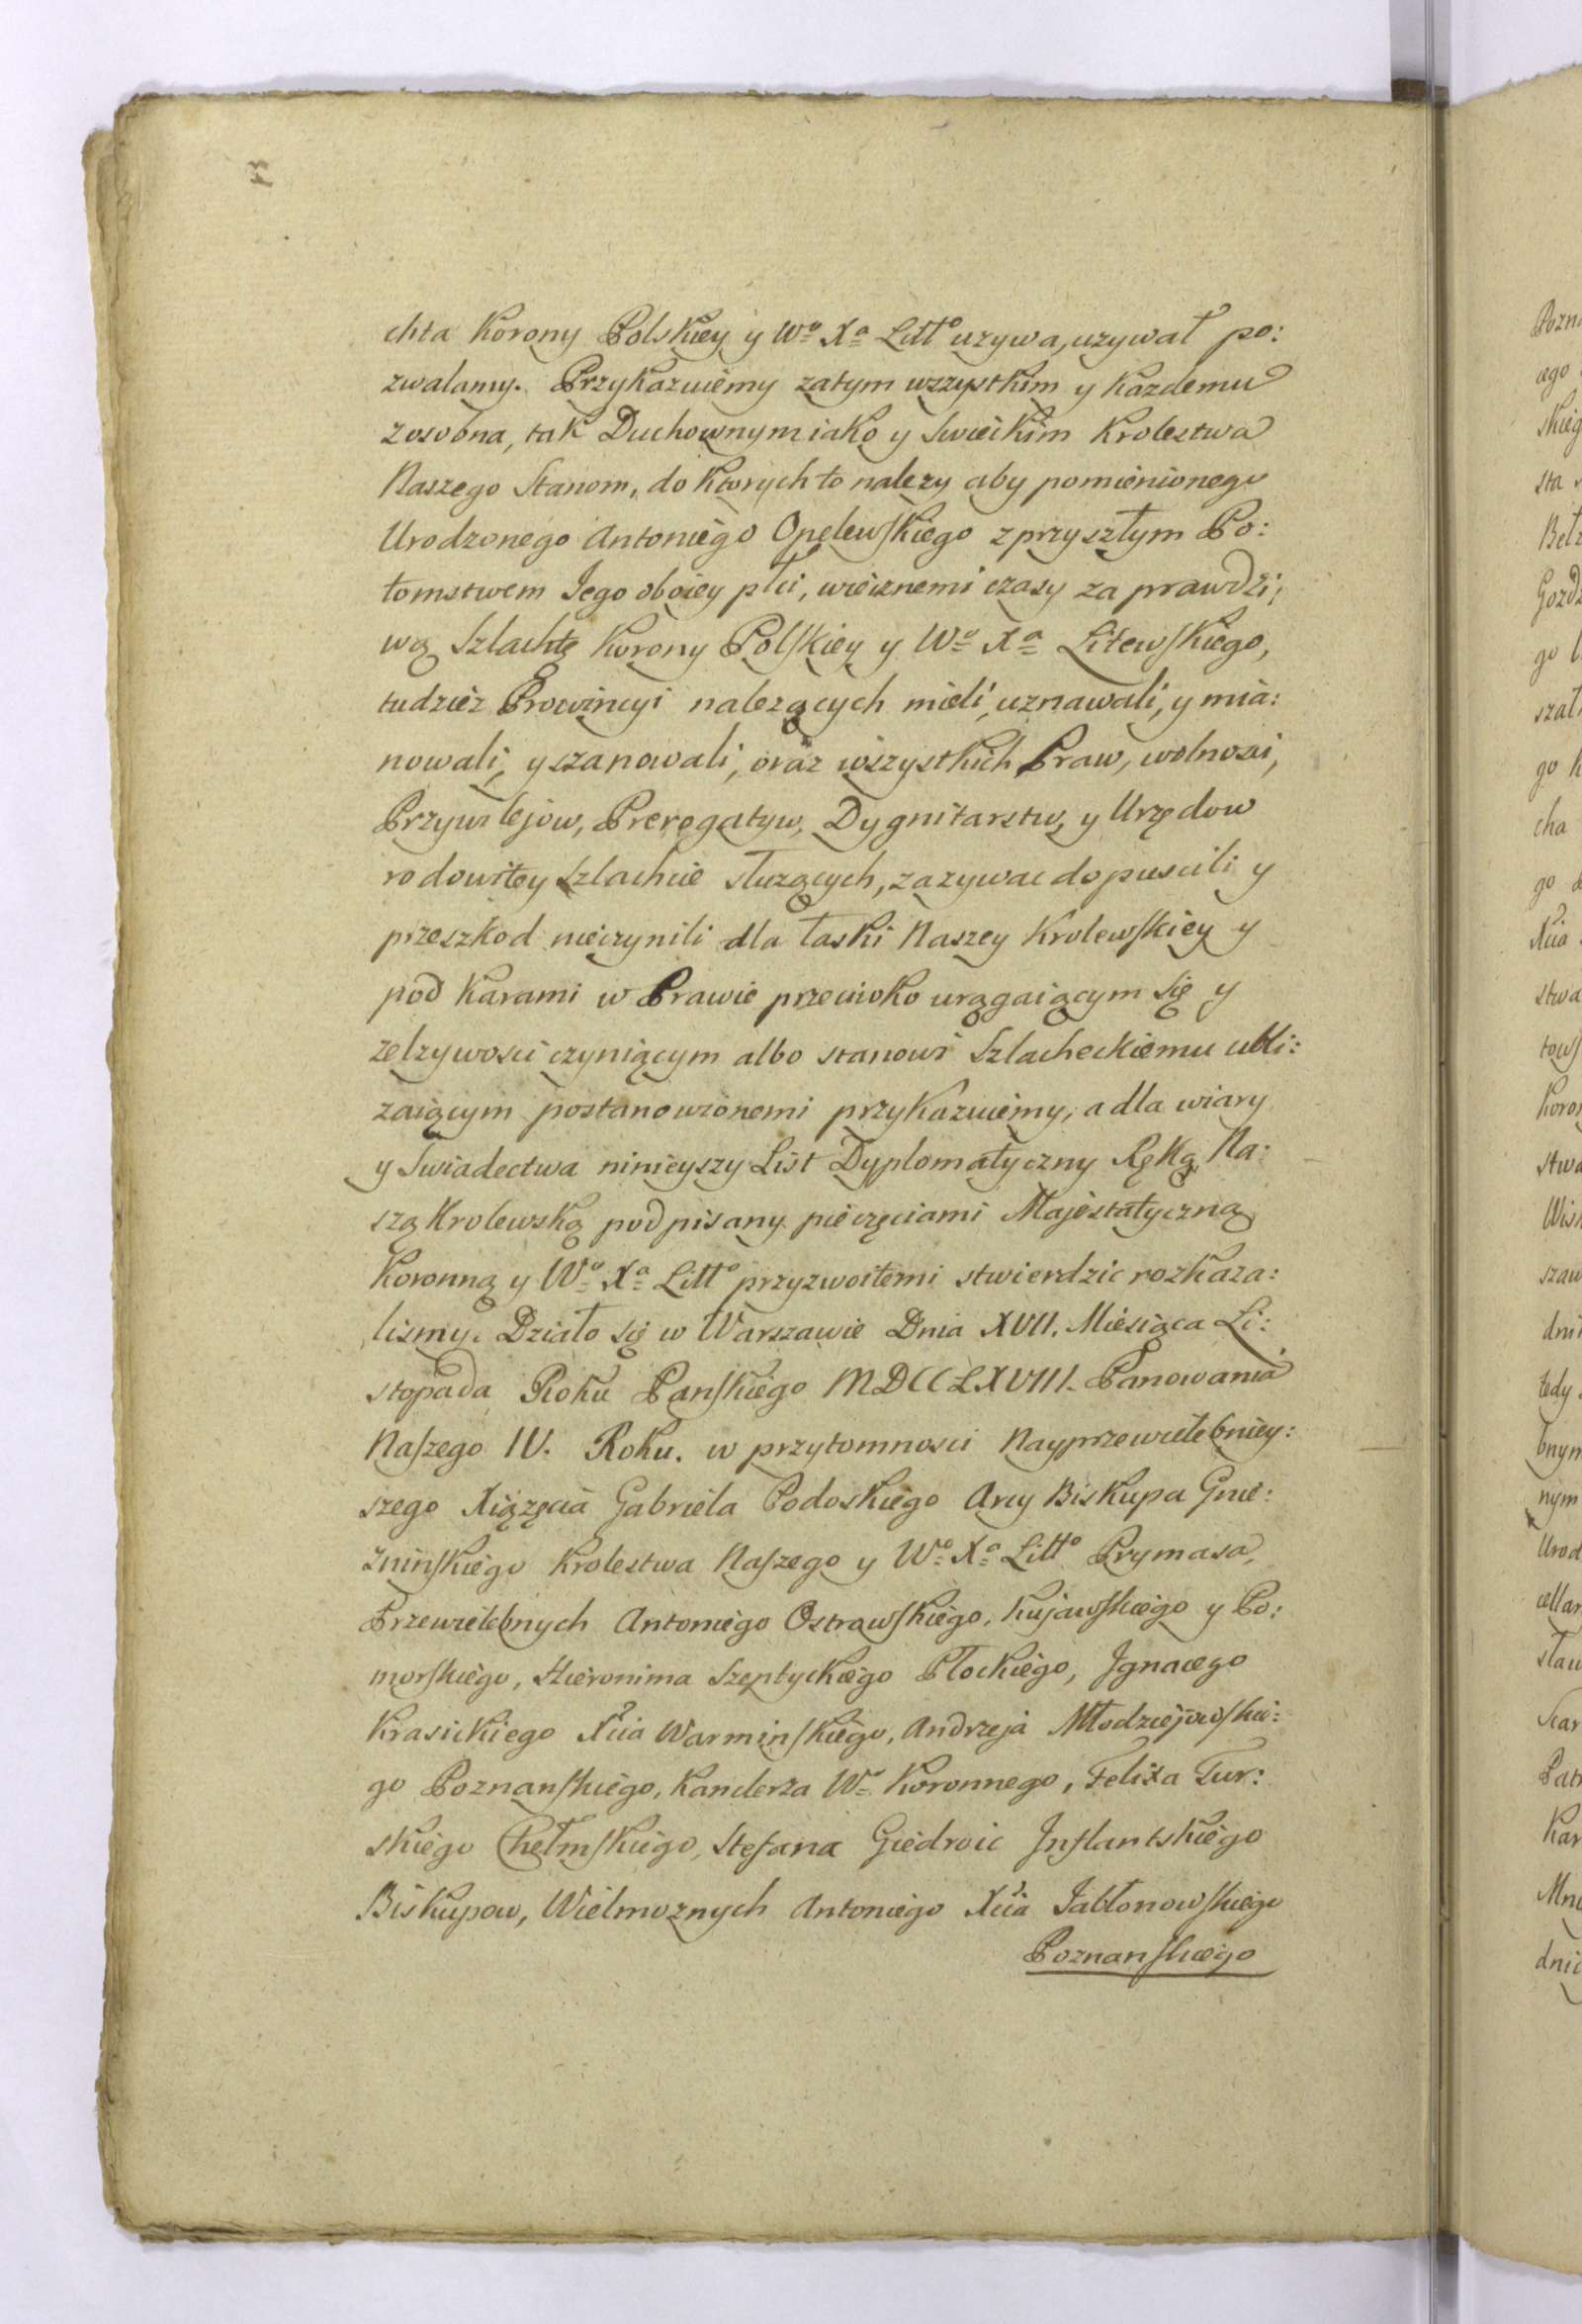 chta Korony Polskiey y Wº Xª Littº uzywa, uzywał po:
zwalamy. Przykazuiemy zatym wszystkim y kazdemu
zosobna, tak Duchownym iako y Swieckim Krolestwa
Naszego Stanom, do ktorych to nalezy aby pomienionego
Urodzonego Antoniego Opelewskiego z przyszłym Po:
tomstwem Jego oboiey płci, wiecznemi czasy za prawdzi:
wą Szlachtę Korony Polskiey y Wº Xª Litewskiego,
tudziez Prowincyi nalezących mieli, uznawali, y mia:
nowali, y szanowali, oraz wszystkich Praw, wolnosci,
Przywilejow, Prerogatyw, Dygnitarstw, y Urzędow
rodowitey Szlachcie słuzących, zazywac dopuscili y
przeszkod nieczynili dla łaski Naszey Krolewskiey y
pod karami w Prawie przeciwko urągaiącym się y
zelzywosci czyniącym albo stanowi Szlacheckiemu ubli:
zaiącym postanowionemi przykazuiemy, a dla wiary
y Swiadectwa ninieyszy List Dyplomatyczny Ręką Na:
szą Krolewską podpisany pieczęciami Majestatyczną
Koronną y Wº Xª Littº przyzwoitemi stwierdzic rozkaza:
lismy. Działo się w Warszawie Dnia XVII. Miesiąca Li:
stopada Roku Panskiego MDCCLXVIII. Panowania
Naszego IV. Roku. w przytomnosci Nayprzewielebniey:
szego Xiązęcia Gabriela Podoskiego Arcy Biskupa Gnie:
zninskiego Krolestwa Naszego y Wº Xª Littº Prymasa,
Przewielebnych Antoniego Ostrawskiego, Kujawskiego y Po:
morskiego, Hieronima Szeptyckiego Płockiego, Jgnacego
Krasickiego Xcia Warminskiego, Andrzeja Młodziejowskie:
go Poznanskiego, Kanclerza Wº Koronnego, Felixa Tur:
skiego Chełmskiego, Stefana Giedroic Jnflantskiego
Biskupow, Wielmoznych Antoniego Xcia Jabłonowskiego
Poznanskiego